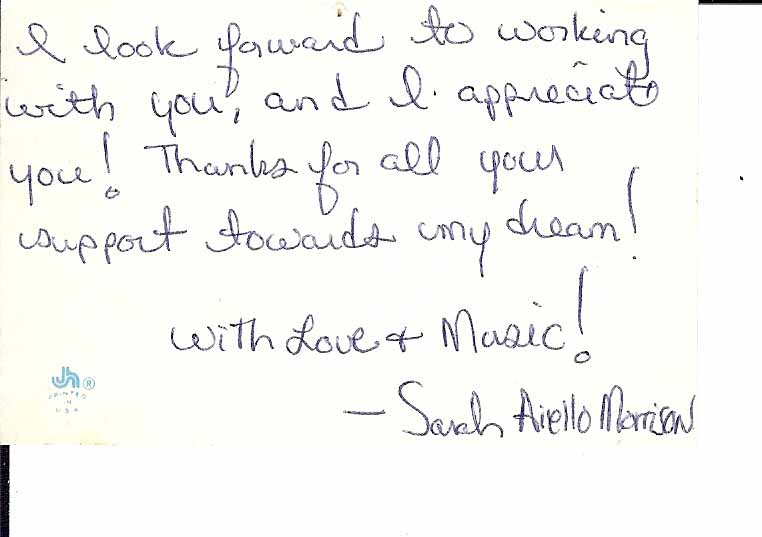 I look forward to working
with you, and I appreciate
you! Thanks for all your
support towards my dream!
With Love & Music!
— Sarah Aiello Morrison
JH ®
PRINTED
IN
U.S.A.